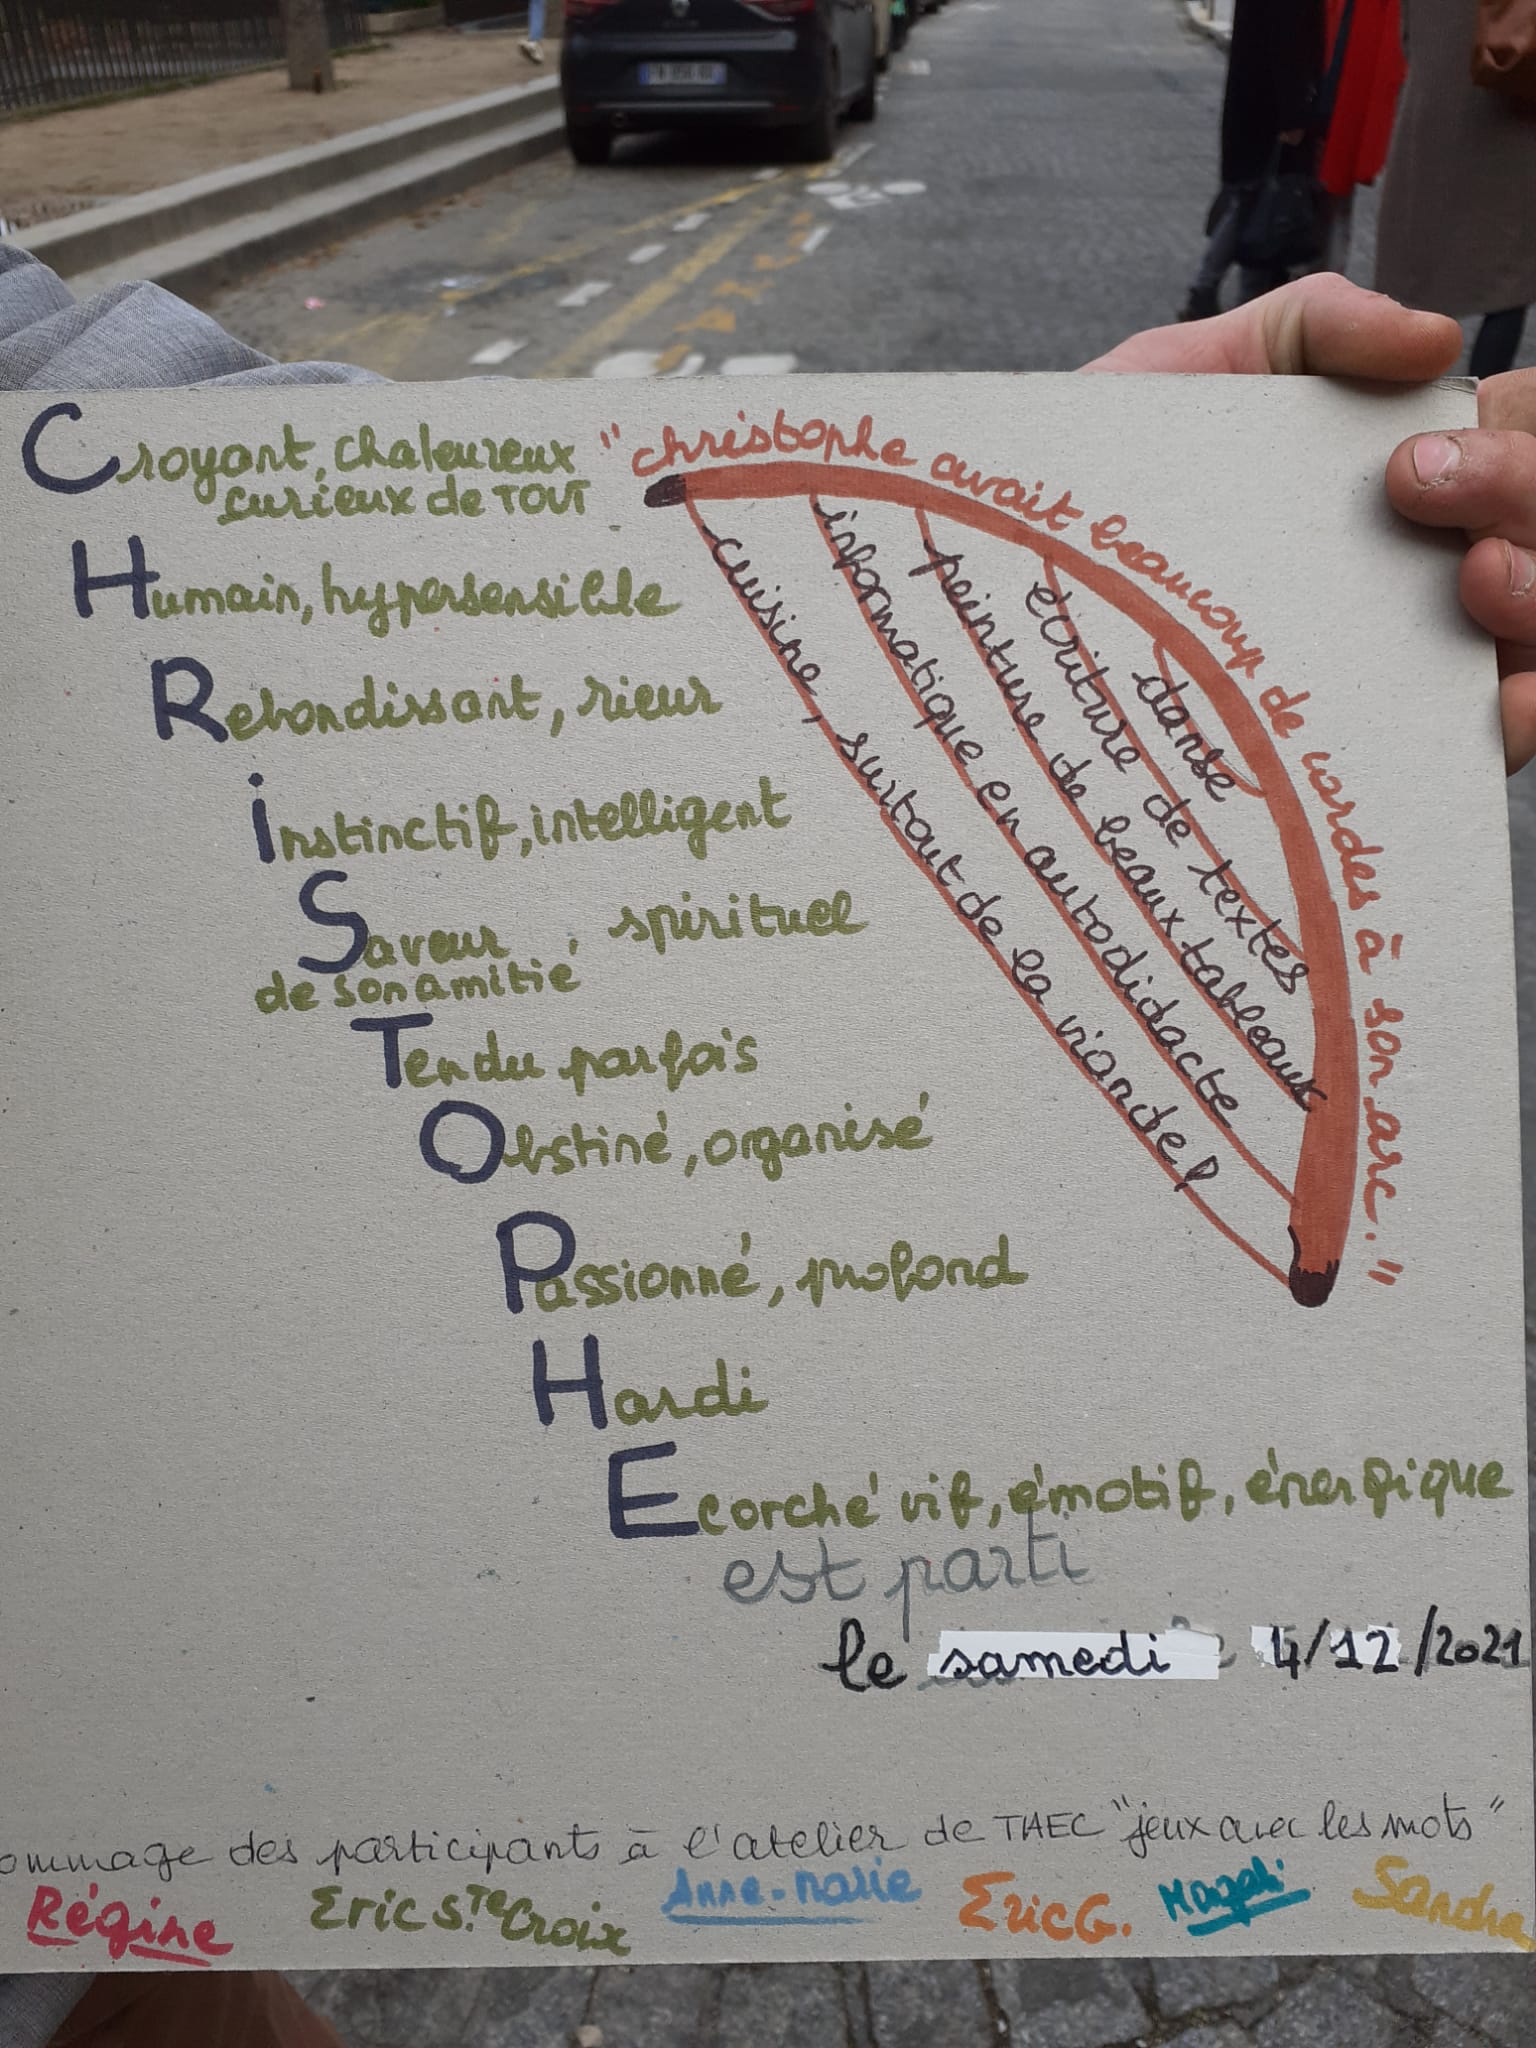 Croyant, chaleureux
curieux de TOUT
Humain, hypersensible
Rebondissant, rieur
instinctif, intelligent
Saveur , spirituel
de son amitié
Tendu parfois
Obstiné, organisé
Passionné, profond
Hardi
Ecorché vif, émotif, énergique
est parti
le samedi 4/12/2021
"christophe avait beaucoup de cordes à son arc."
cuisine, surtout de la viande!
informatique en autodidacte
peinture de beaux tableaux
écriture de textes
danse
ommage des participants à l'atelier de TAEC "jeux avec les mots"
Régine Eric S.te Croix Anne-Marie Eric G. Magali Sandra